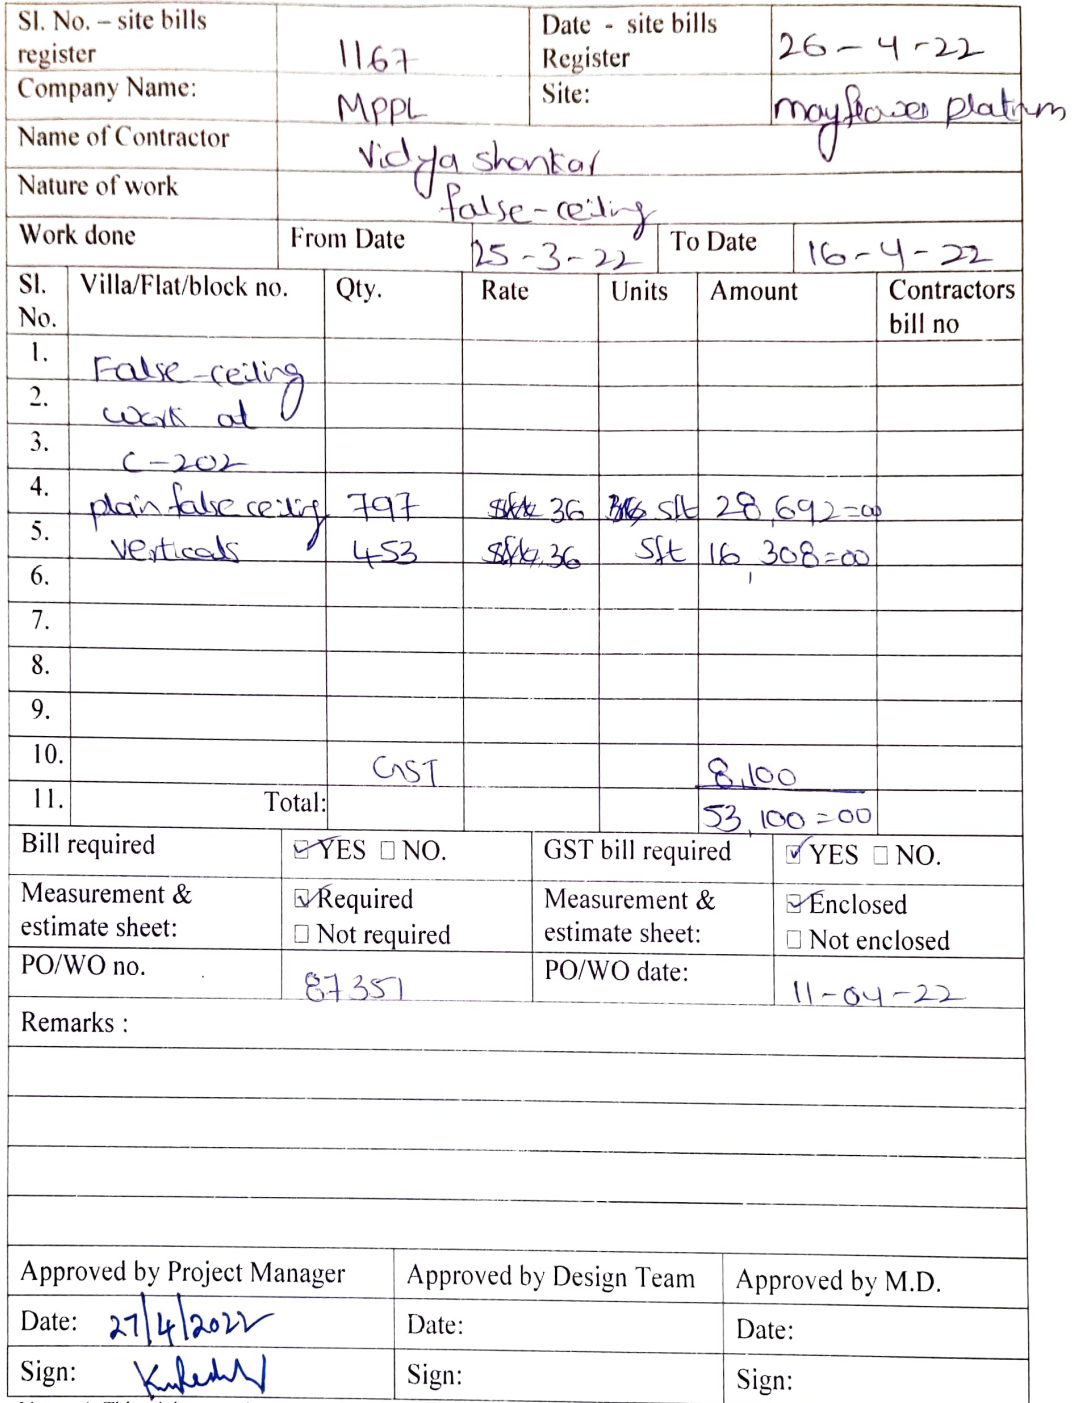 Sl. No. – site bills register 1167 Date - site bills Register 26-4-22
Company Name: MPPL Site: mayflower platinum
Name of Contractor Vidya shankar
Nature of work false-ceiling
Work done From Date 25-3-22 To Date 16-4-22
Sl. No. Villa/Flat/block no. Qty. Rate Units Amount Contractors bill no
1. False-ceiling
2. work at
3. C-202
4. plain false ceiling 797 36 sft 28,692=00
5. verticals 453 36 sft 16,308=00
6.
7.
8.
9.
10. GST 8,100
11. Total: 53,100=00
Bill required ☑ YES ☐ NO. GST bill required ☑ YES ☐ NO.
Measurement & estimate sheet: ☑ Required ☐ Not required Measurement & estimate sheet: ☑ Enclosed ☐ Not enclosed
PO/WO no. 87351 PO/WO date: 11-04-22
Remarks :
Approved by Project Manager Approved by Design Team Approved by M.D.
Date: 27/4/2022 Date: Date:
Sign: Sign: Sign: